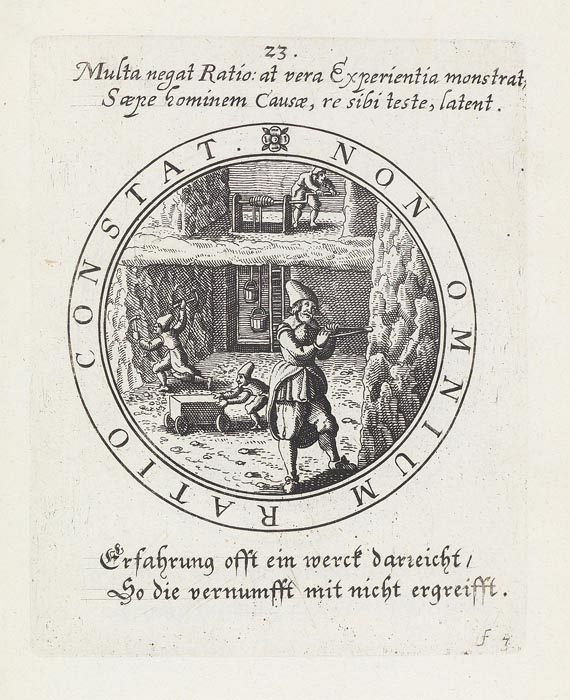 23.
Multa negat Ratio: at vera Experientia monstrat,
Sæpe hominem Causæ, re sibi teste, latent.
NON OMNIUM RATIO CONSTAT.
Erfahrung offt ein werck darreicht/
So die vernumfft mit nicht ergreifft.
f 4